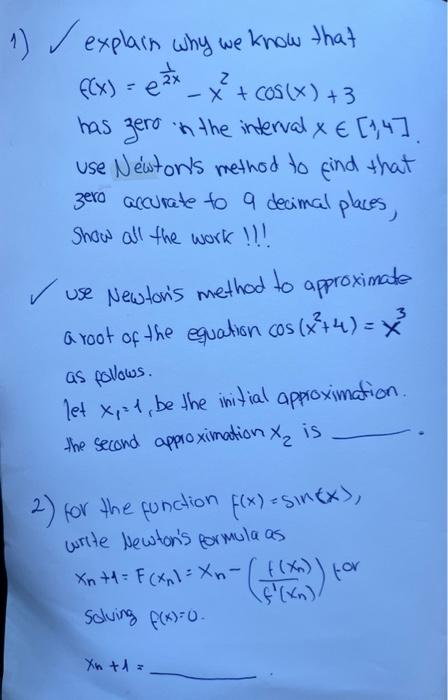 1) ✓ explain why we know that
f(x) = e^(1/2x) - x² + cos(x) + 3
has zero in the interval x ∈ [1,4].
use Newton's method to find that
zero accurate to 9 decimal places,
Show all the work !!!
✓ use Newton's method to approximate
a root of the equation cos(x²+4) = x³
as follows.
let x₁=1, be the initial approximation.
the second approximation x₂ is ____.
2) for the function f(x) = sin(x),
write Newton's formula as
xn+1 = F(xn) = xn - (f(xn)/f'(xn)) for
solving f(x)=0.
xn+1 = ____.